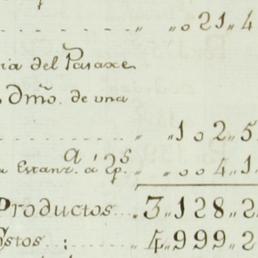 „ „ 021„4
ria del Paraxe
Dmo. de una
„ „ 102„5
a Estanz. a á 2s 2p. „ „ 004„1
Productos... 3„128„2
stos : 4„999„2